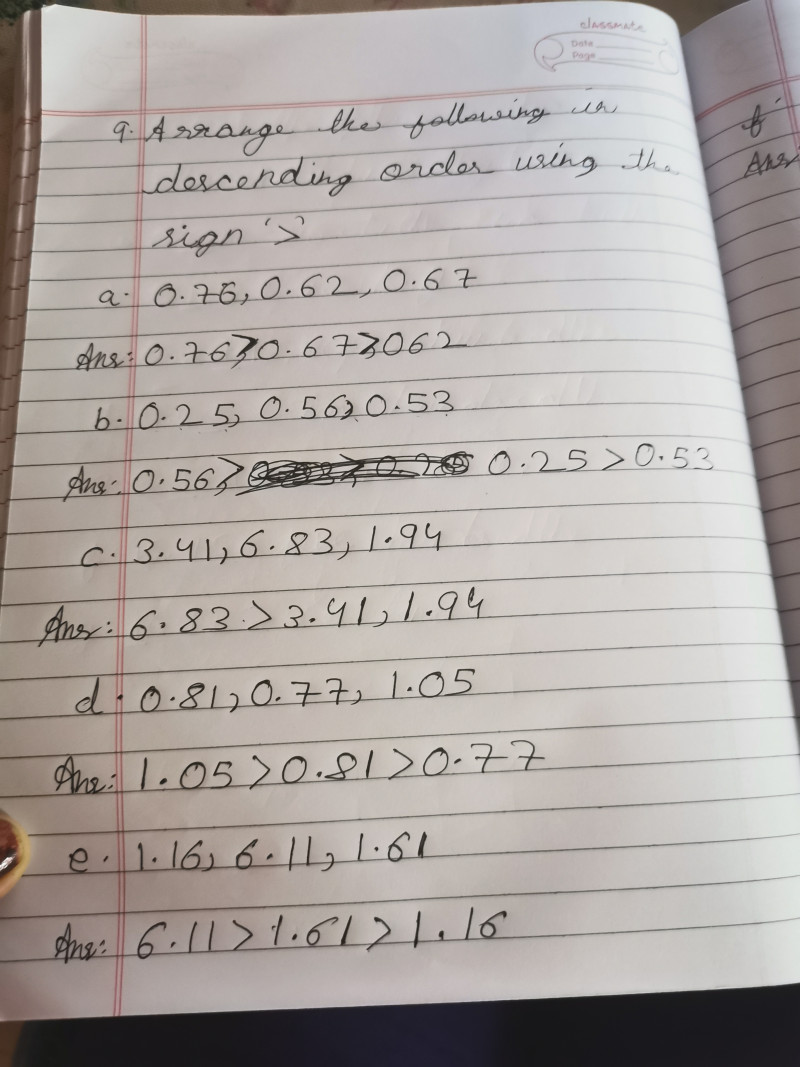 classmate
Date
Page
9. Arrange the following in
descending order using the
sign '>'
a. 0.76, 0.62, 0.67
Ans: 0.76>0.67>062
b. 0.25, 0.56, 0.53
Ans: 0.56> 0.25 > 0.53
c. 3.41, 6.83, 1.94
Ans: 6.83 > 3.41, 1.94
d. 0.81, 0.77, 1.05
Ans: 1.05 > 0.81 > 0.77
e. 1.16, 6.11, 1.61
Ans: 6.11 > 1.61 > 1.16
f
Ans